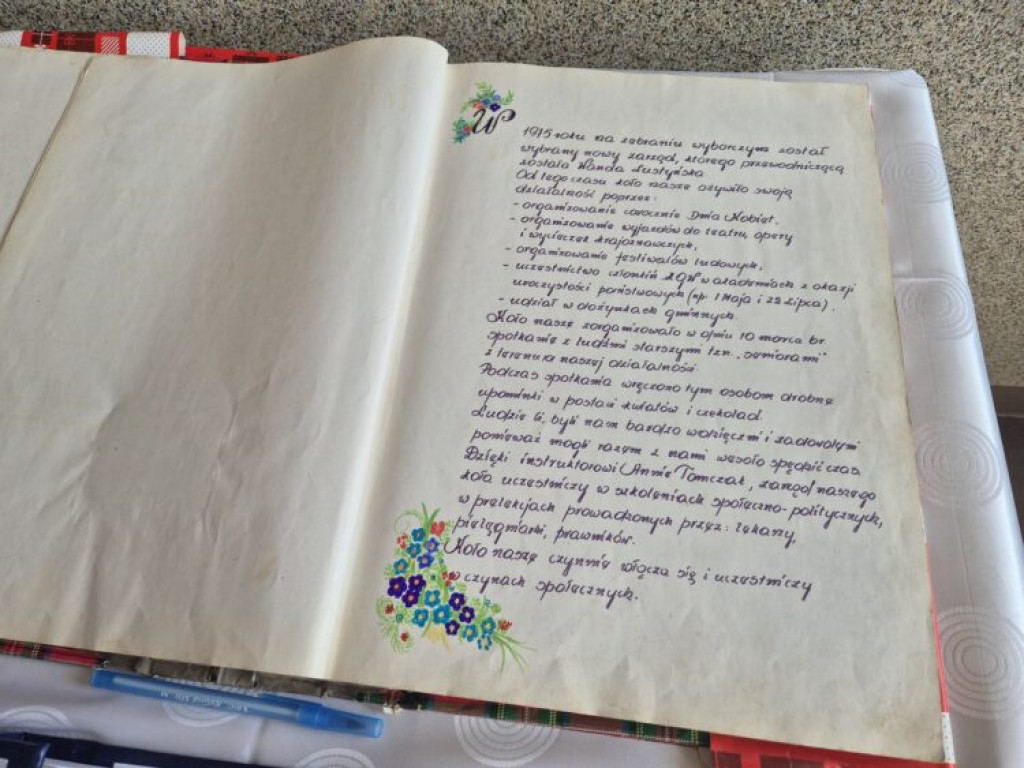 W 1975 roku na zebraniu wyborczym został
wybrany nowy zarząd, którego przewodniczącą
została Wanda Lustyńska
Od tego czasu koło nasze ożywiło swoją
działalność poprzez:
- organizowanie corocznie Dnia Kobiet.
- organizowanie wyjazdów do teatru, opery
i wycieczek krajoznawczych,
- organizowanie festiwalów ludowych,
- uczestnictwo członkiń KGW w akademiach z okazji
uroczystości państwowych (np. 1 Maja i 22 Lipca).
- udział w dożynkach gminnych.
Koło nasze zorganizowało w dniu 10 marca br.
spotkanie z ludźmi starszymi tzn. „seniorami"
z terenu naszej działalności.
Podczas spotkania wręczono tym osobom drobne
upominki w postaci kwiatów i czekolad.
Ludzie ci, byli nam bardzo wdzięczni i zadowoleni
ponieważ mogli razem z nami wesoło spędzić czas.
Dzięki instruktorowi Annie Tomczak, zarząd naszego
koła uczestniczy w szkoleniach społeczno-politycznych,
w prelekcjach prowadzonych przez: lekarzy,
pielęgniarki, prawników.
Koło nasze czynnie włącza się i uczestniczy
w czynach społecznych.